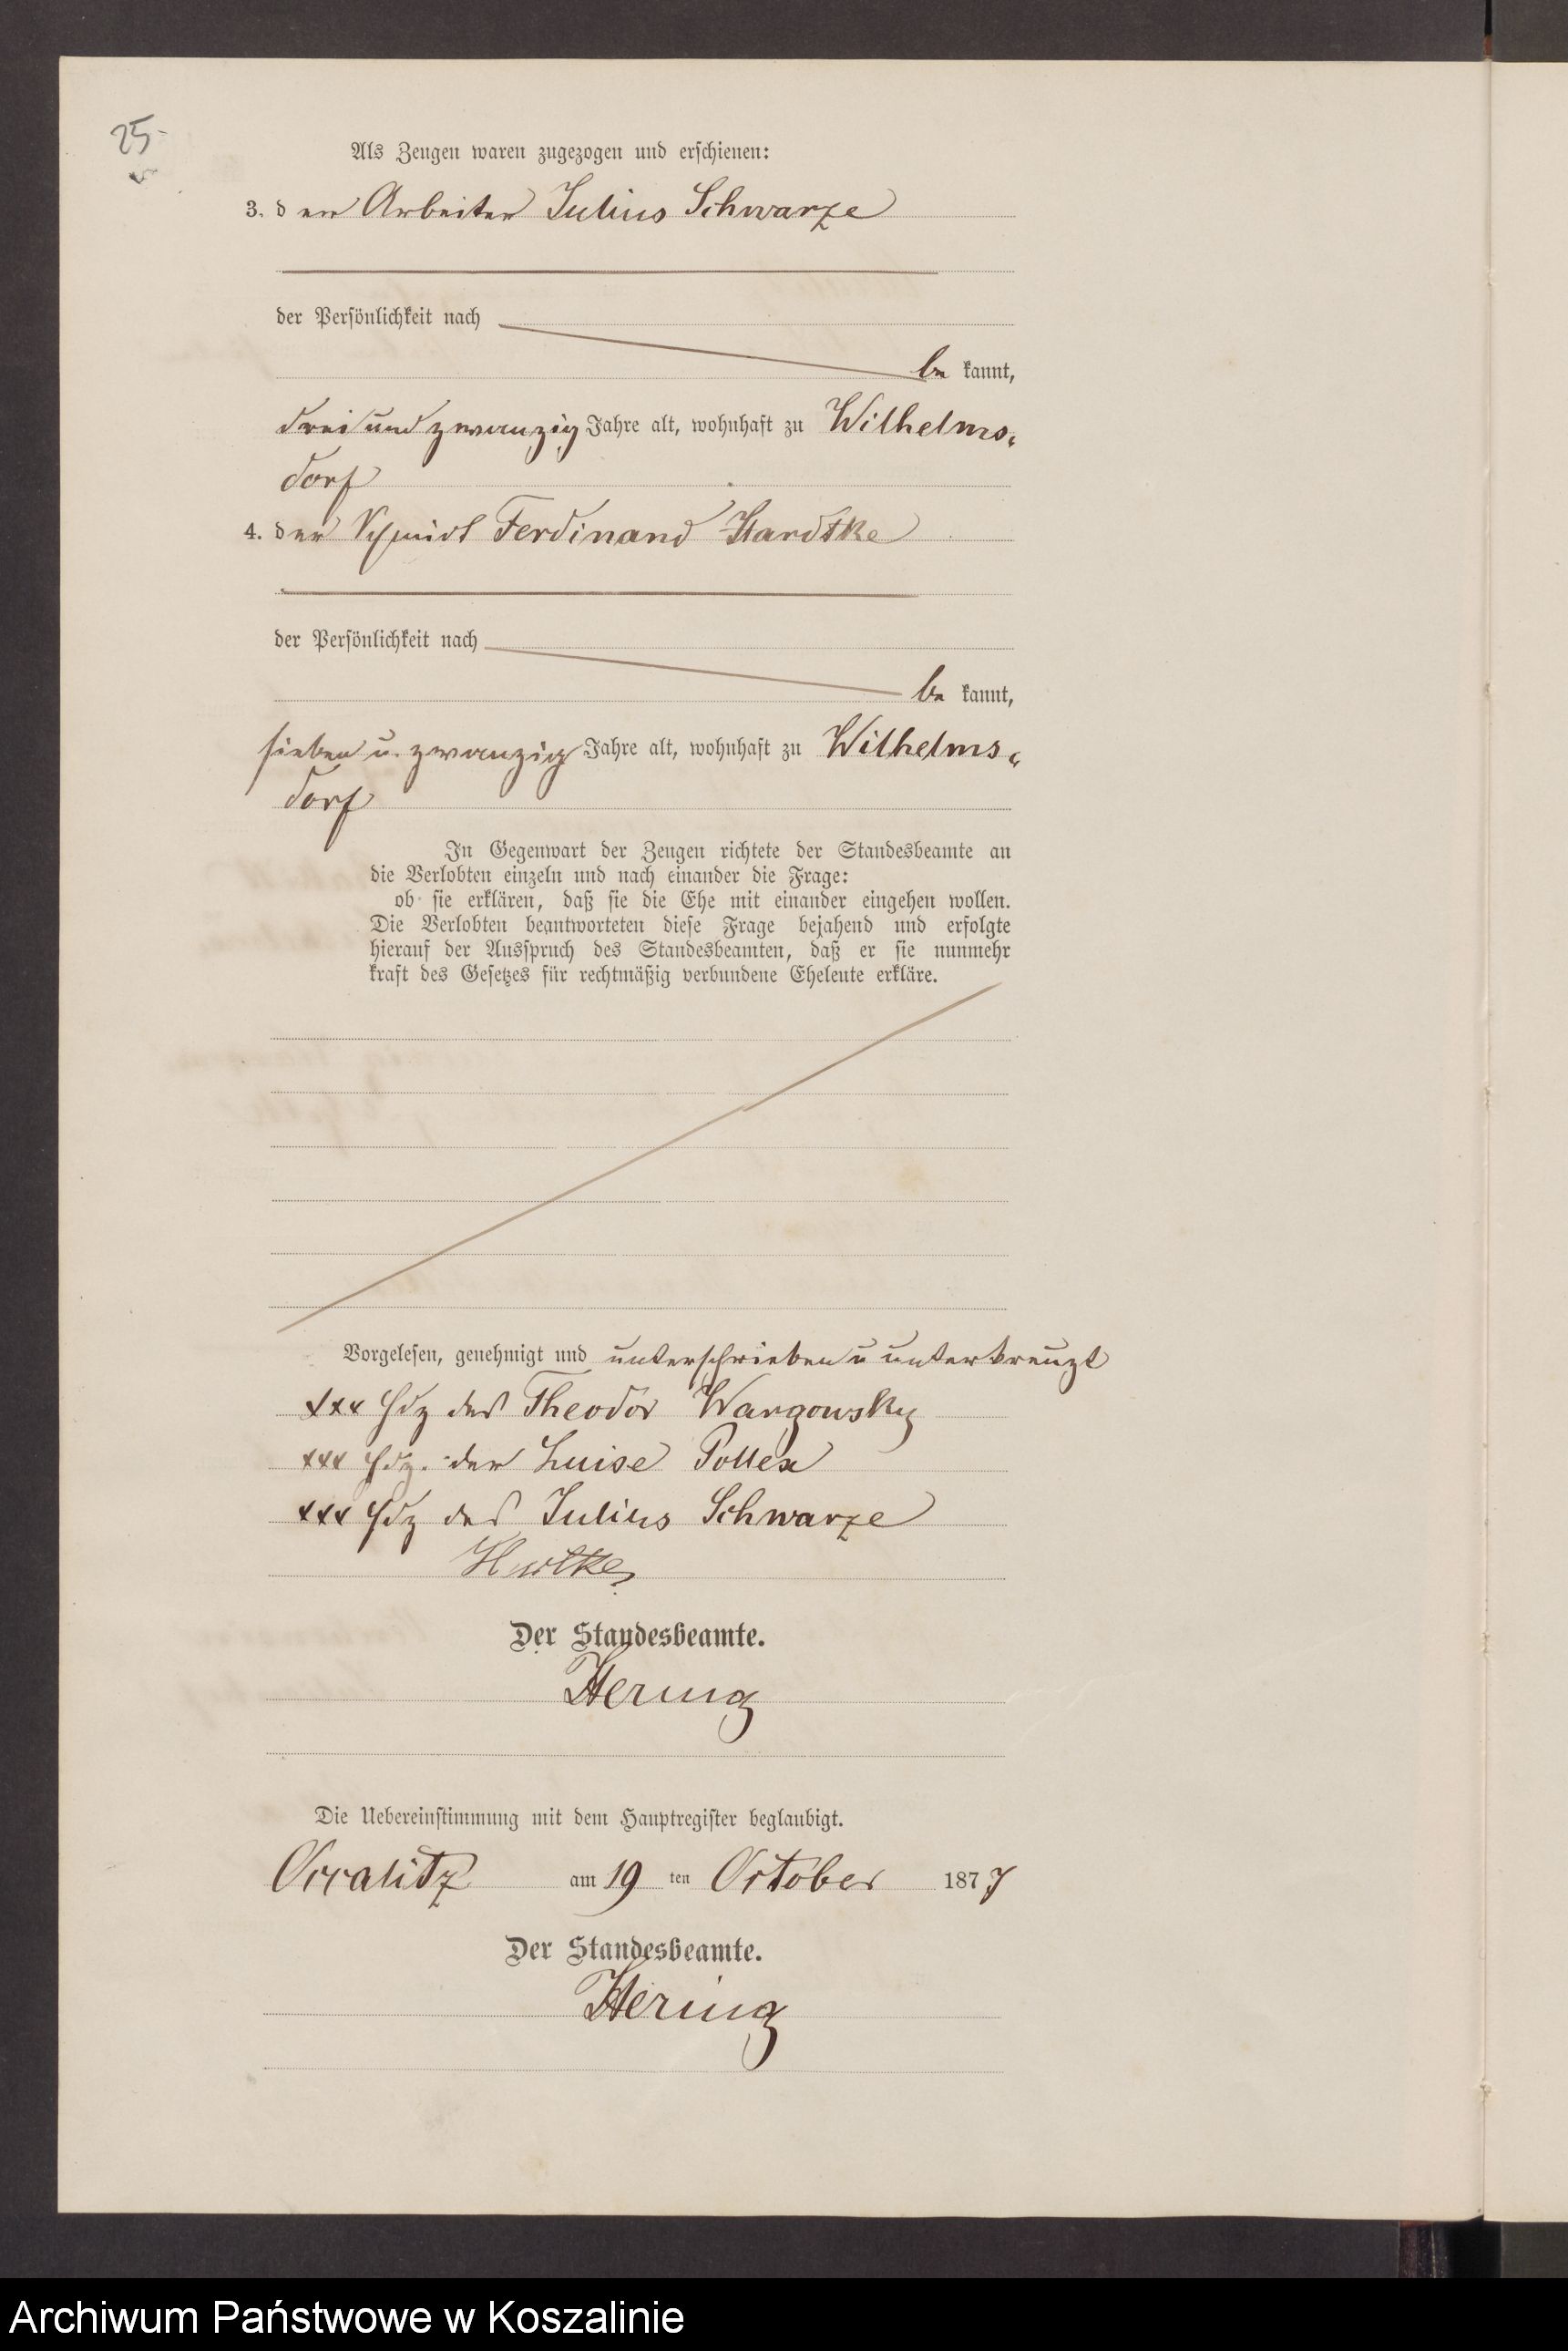 25
v
Als Zeugen waren zugezogen und erschienen:
3. der Arbeiter Julius Schwarze
der Persönlichkeit nach
be kannt,
drei und zwanzig Jahre alt, wohnhaft zu Wilhelms-
dorf
4. der Schmidt Ferdinand Hardtke
der Persönlichkeit nach
be kannt,
sieben u. zwanzig Jahre alt, wohnhaft zu Wilhelms-
dorf
In Gegenwart der Zeugen richtete der Standesbeamte an
die Verlobten einzeln und nach einander die Frage:
ob sie erklären, daß sie die Ehe mit einander eingehen wollen.
Die Verlobten beantworteten diese Frage bejahend und erfolgte
hierauf der Ausspruch des Standesbeamten, daß er sie nunmehr
kraft des Gesetzes für rechtmäßig verbundene Eheleute erkläre.
Vorgelesen, genehmigt und unterschrieben u unterkreuzt
xxx Hdz des Theodor Wargowsky
xxx Hdz. der Luise Pollex
xxx Hdz des Julius Schwarze
Der Standesbeamte.
Hering
Die Uebereinstimmung mit dem Hauptregister beglaubigt.
Occalitz am 19 ten October 1877
Der Standesbeamte.
Hering
Archiwum Państwowe w Koszalinie